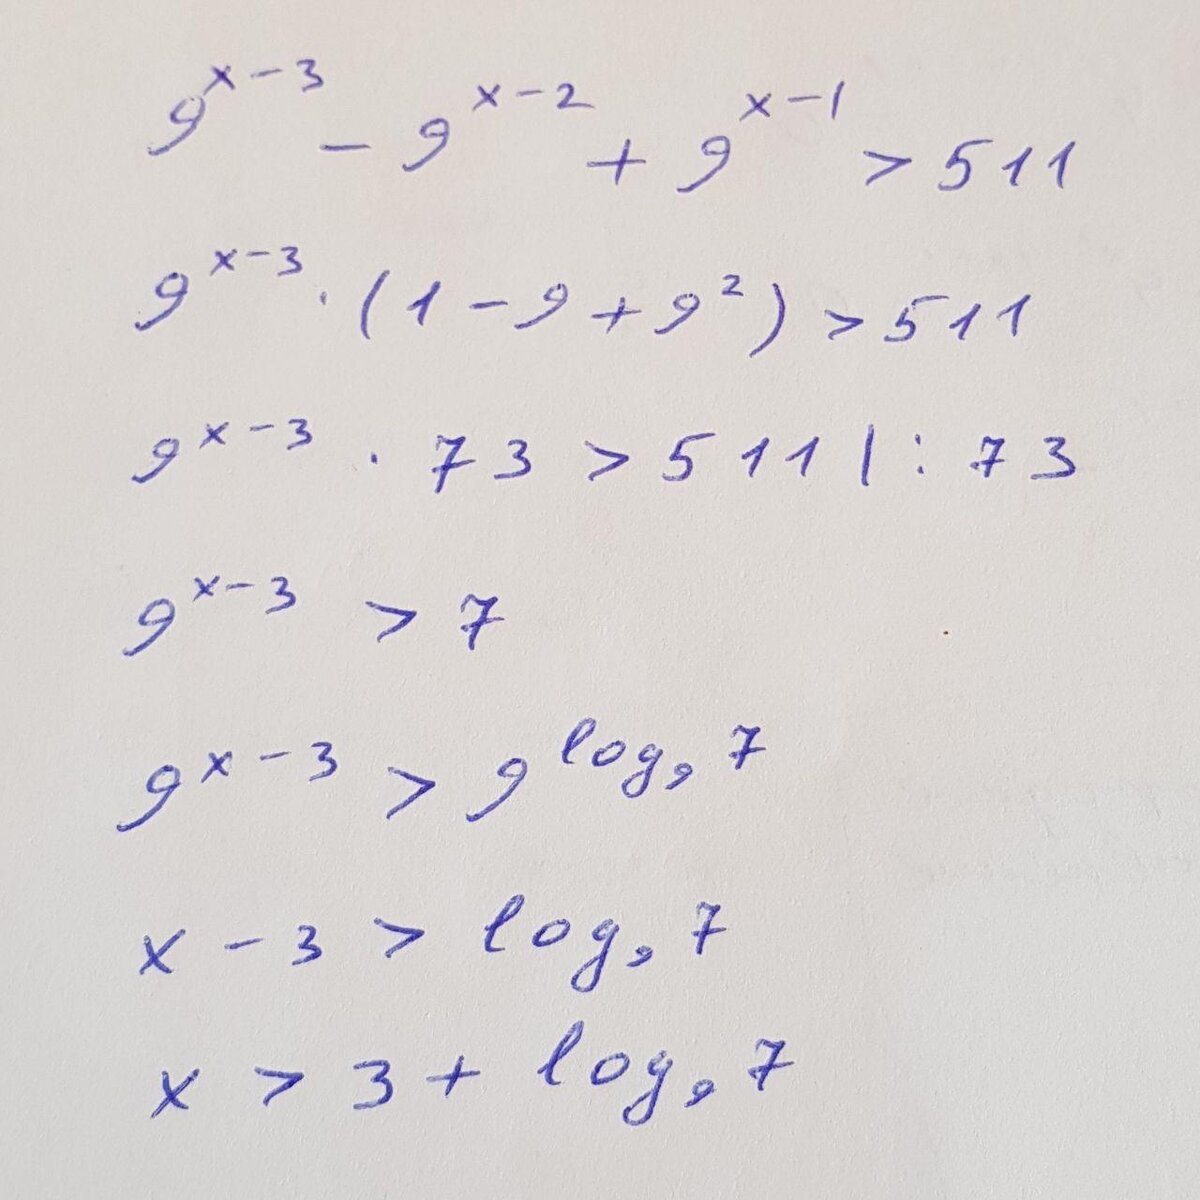 9^{x-3} - 9^{x-2} + 9^{x-1} > 511
9^{x-3} · (1 - 9 + 9^2) > 511
9^{x-3} · 73 > 511 | : 73
9^{x-3} > 7
9^{x-3} > 9^{log_9 7}
x - 3 > log_9 7
x > 3 + log_9 7